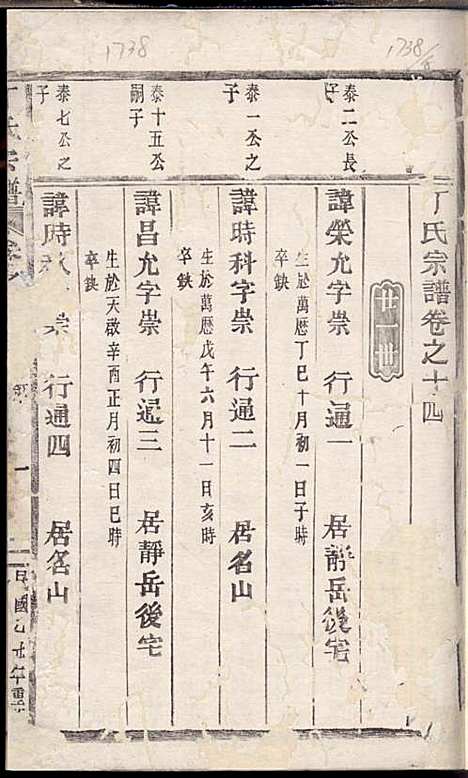 1738
1738/8
丁氏宗譜卷之十四
廿一世
泰二公長子
諱榮允字崇 行通一 居靜岳後宅
生於萬曆丁巳十月初一日子時
卒缺
泰一公之子
諱時科字崇 行通二 居名山
生於萬曆戊午六月十一日亥時
卒缺
泰十五公嗣子
諱昌允字崇 行通三 居靜岳後宅
生於天啟辛酉正月初四日巳時
卒缺
泰七公之子
諱時 崇 行通四 居名山
氏宗譜 卷之
一
民國乙 年重